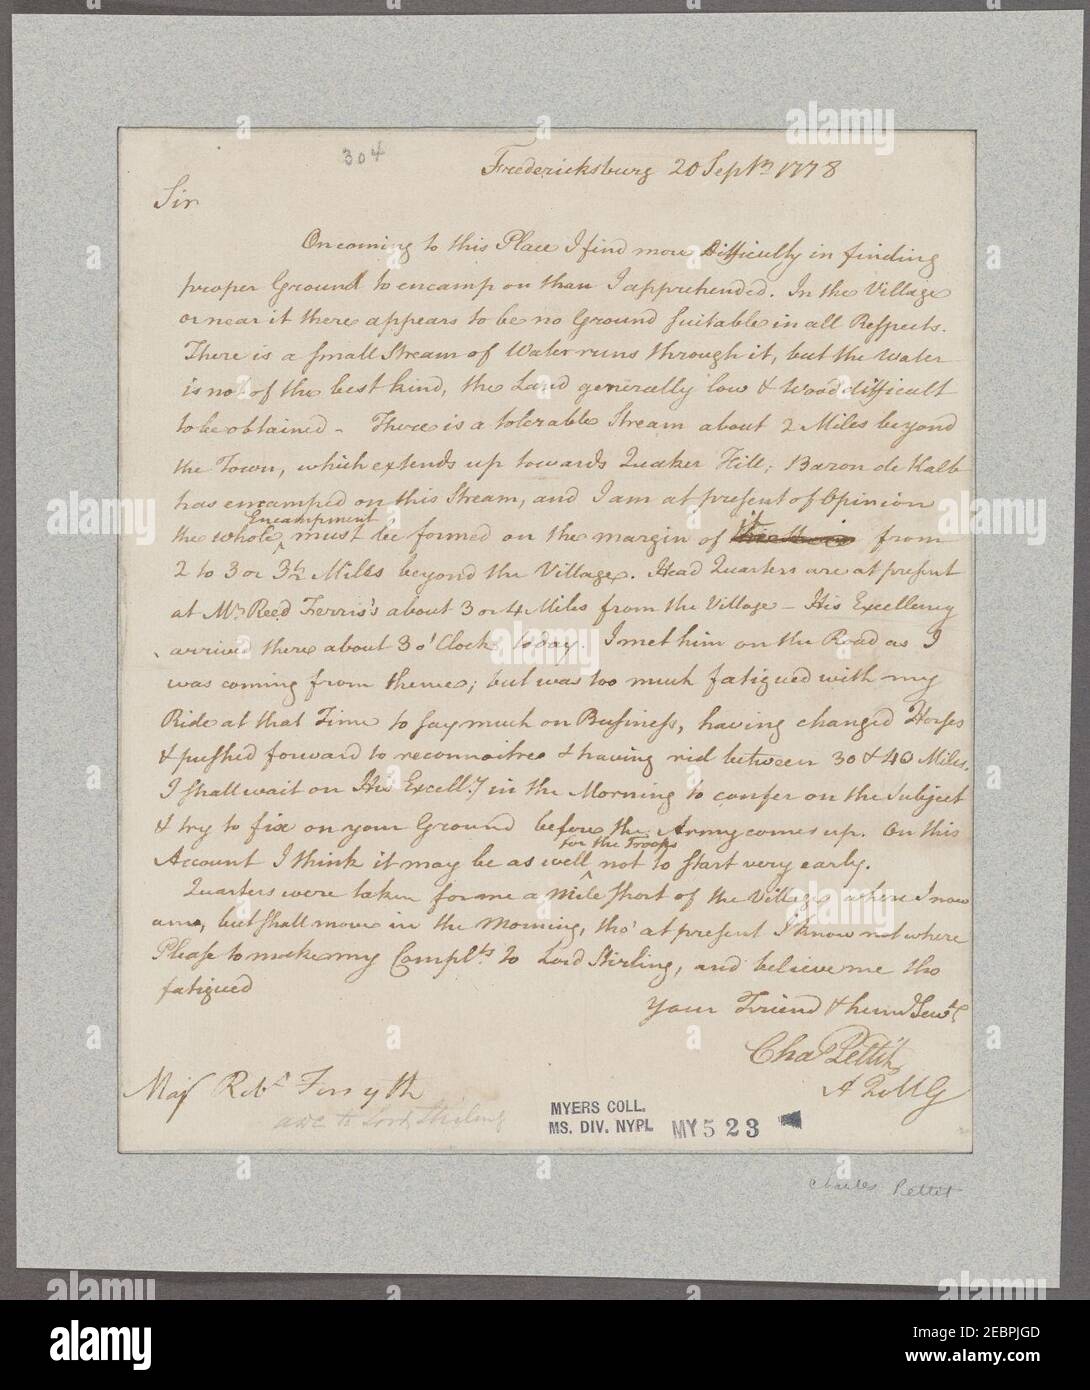 304
Fredericksburg 20 Septr. 1778
Sir
On coming to this Place I find more Difficulty in finding
proper Ground to encamp on than I apprehended. In the Village
or near it there appears to be no Ground suitable in all Respects.
There is a small Stream of Water runs through it, but the Water
is not of the best kind, the Land generally low & Wood difficult
to be obtained - There is a tolerable Stream about 2 Miles beyond
the Town, which extends up towards Quaker Hill; Baron de Kalb
has encamped on this Stream, and I am at present of Opinion
the whole Encampment must be formed on the margin of it from
2 to 3 or 3½ Miles beyond the Village. Head Quarters are at present
at Mr. Reed Ferris's about 3 or 4 Miles from the Village - His Excellency
arrived there about 3 o'Clock today. I met him on the Road as I
was coming from thence; but was too much fatigued with my
Ride at that Time to say much on Business, having changed Horses
& pushed forward to reconnoitre & having rid between 30 & 40 Miles.
I shall wait on His Excelly in the Morning to confer on the Subject
& try to fix on your Ground before the Army comes up. On this
Account I think it may be as well for the Troops not to start very early.
Quarters were taken for me a Mile short of the Village where I now
am, but shall move in the Morning, tho' at present I know not where
Please to make my Complts. to Lord Stirling, and believe me tho
fatigued
Your Friend & hum Servt.
Chas Pettit
A Q M G
Maj Robt. Forsyth
ADC to Lord Stirling
MYERS COLL.
MS. DIV. NYPL
MY 523
Charles Pettit
alamy
Image ID: 2EBPJGD
www.alamy.com